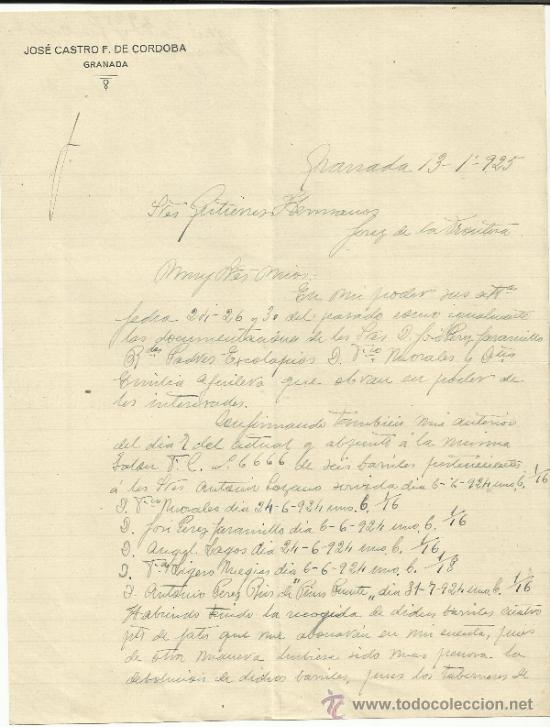 JOSÉ CASTRO F. DE CORDOBA
GRANADA
Granada 13-1º-925
Sres Gutierrez Hermanos
Jerez de la Frontera
Muy Sres mios:
En mi poder sus
fecha 24-26 y 30 del pasado como igualmente
las documentaciones de los Sres. D. José Perez Jaramillo
Rdos Padres Escolapios D. Morales y
Emilia Aguilera que obran en poder de
los interesados.
Confirmando tambien mi anterior
del dia 7 del actual y adjunté á la misma
talon S. 6666 de seis barriles pertenecientes
á los Sres Antonio Lozano servida dia 6-6-924 uno b. 1/16
D. Morales dia 24-6-924 uno b. 1/16
D. José Perez Jaramillo dia 6-6-924 uno b. 1/16
D. Angel Lagos dia 24-6-924 uno b. 1/16
D. Ligero Megias dia 6-6-924 uno b. 1/18
D. Antonio Perez dia 31-7-924 uno b. 1/16
Habiendo tenido la recogida de dichos barriles cuatro
pts de que me abonarán en mi cuenta, pues
de otra manera hubiera sido mas penosa la
devolucion de dichos barriles, pues los taberneros de
www.todocoleccion.net